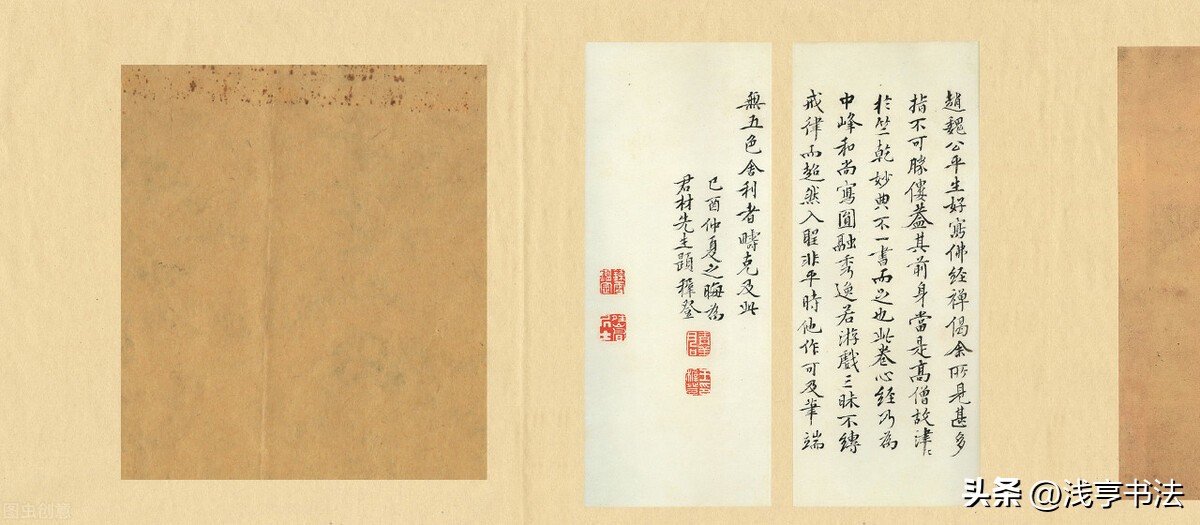 趙魏公平生好寫佛經禪偈余所見甚多
指不可勝僂蓋其前身當是高僧故津〻
於竺乾妙典不一書而足也此卷心經乃為
中峰和尚寫圓融秀逸若游戲三昧不縛
戒律而超然入聖非平時他作可及筆端
無五色舍利者疇克及此
己酉仲夏之晦為
君材先生題穉登
头条 @浅亨书法
图虫创意